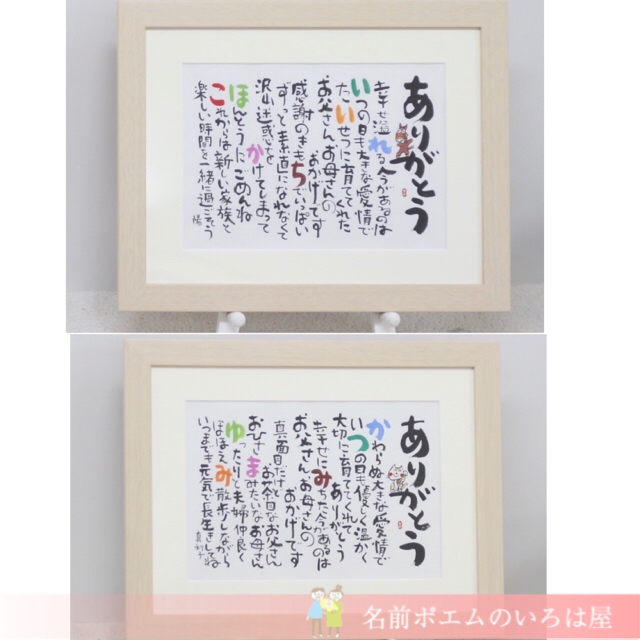 ありがとう
幸せ溢れる今があるのは
いつの日も大きな愛情で
たいせつに育ててくれた
お父さんお母さんの
おかげです
感謝のきもちでいっぱい
ずっと素直になれなくて
沢山迷惑をかけてしまって
ほんとうにごめんね
これからは新しい家族と
楽しい時間を一緒に過ごそう
ありがとう
かわらぬ大きな愛情で
いつの日も優しく温かく
大切に育ててくれて
ありがとう
幸せにみちた今があるのは
お父さんお母さんの
おかげです
真面目だけど
お茶目なお父さん
おひさまみたいなお母さん
ゆったりと夫婦仲良く
ほほえみ散歩しながら
いつまでも元気で長生きしてね
名前ポエムのいろは屋